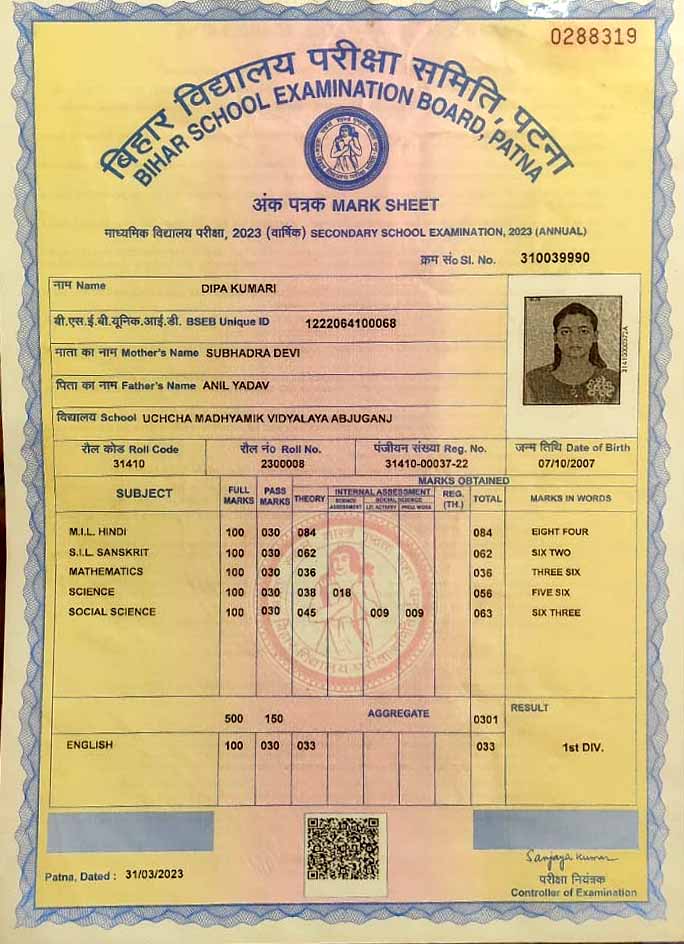 0288319
बिहार विद्यालय परीक्षा समिति, पटना
BIHAR SCHOOL EXAMINATION BOARD, PATNA
अंक पत्रक MARK SHEET
माध्यमिक विद्यालय परीक्षा, 2023 (वार्षिक) SECONDARY SCHOOL EXAMINATION, 2023 (ANNUAL)
क्रम सं० Sl. No. 310039990
नाम Name DIPA KUMARI
बी.एस.ई.बी.यूनिक.आई.डी. BSEB Unique ID 1222064100068
माता का नाम Mother's Name SUBHADRA DEVI
पिता का नाम Father's Name ANIL YADAV
विद्यालय School UCHCHA MADHYAMIK VIDYALAYA ABJUGANJ
रौल कोड Roll Code रौल नं० Roll No. पंजीयन संख्या Reg. No. जन्म तिथि Date of Birth
31410 2300008 31410-00037-22 07/10/2007
SUBJECT FULL MARKS PASS MARKS MARKS OBTAINED
THEORY INTERNAL ASSESSMENT REG. (TH.) TOTAL MARKS IN WORDS
SCIENCE ASSESSMENT SOCIAL SCIENCE
LIT. ACTIVITY PROJ. WORK
M.I.L. HINDI 100 030 084 084 EIGHT FOUR
S.I.L. SANSKRIT 100 030 062 062 SIX TWO
MATHEMATICS 100 030 036 036 THREE SIX
SCIENCE 100 030 038 018 056 FIVE SIX
SOCIAL SCIENCE 100 030 045 009 009 063 SIX THREE
500 150 AGGREGATE 0301 RESULT
ENGLISH 100 030 033 033 1st DIV.
Sanjay Kumar
Patna, Dated : 31/03/2023
परीक्षा नियंत्रक
Controller of Examination